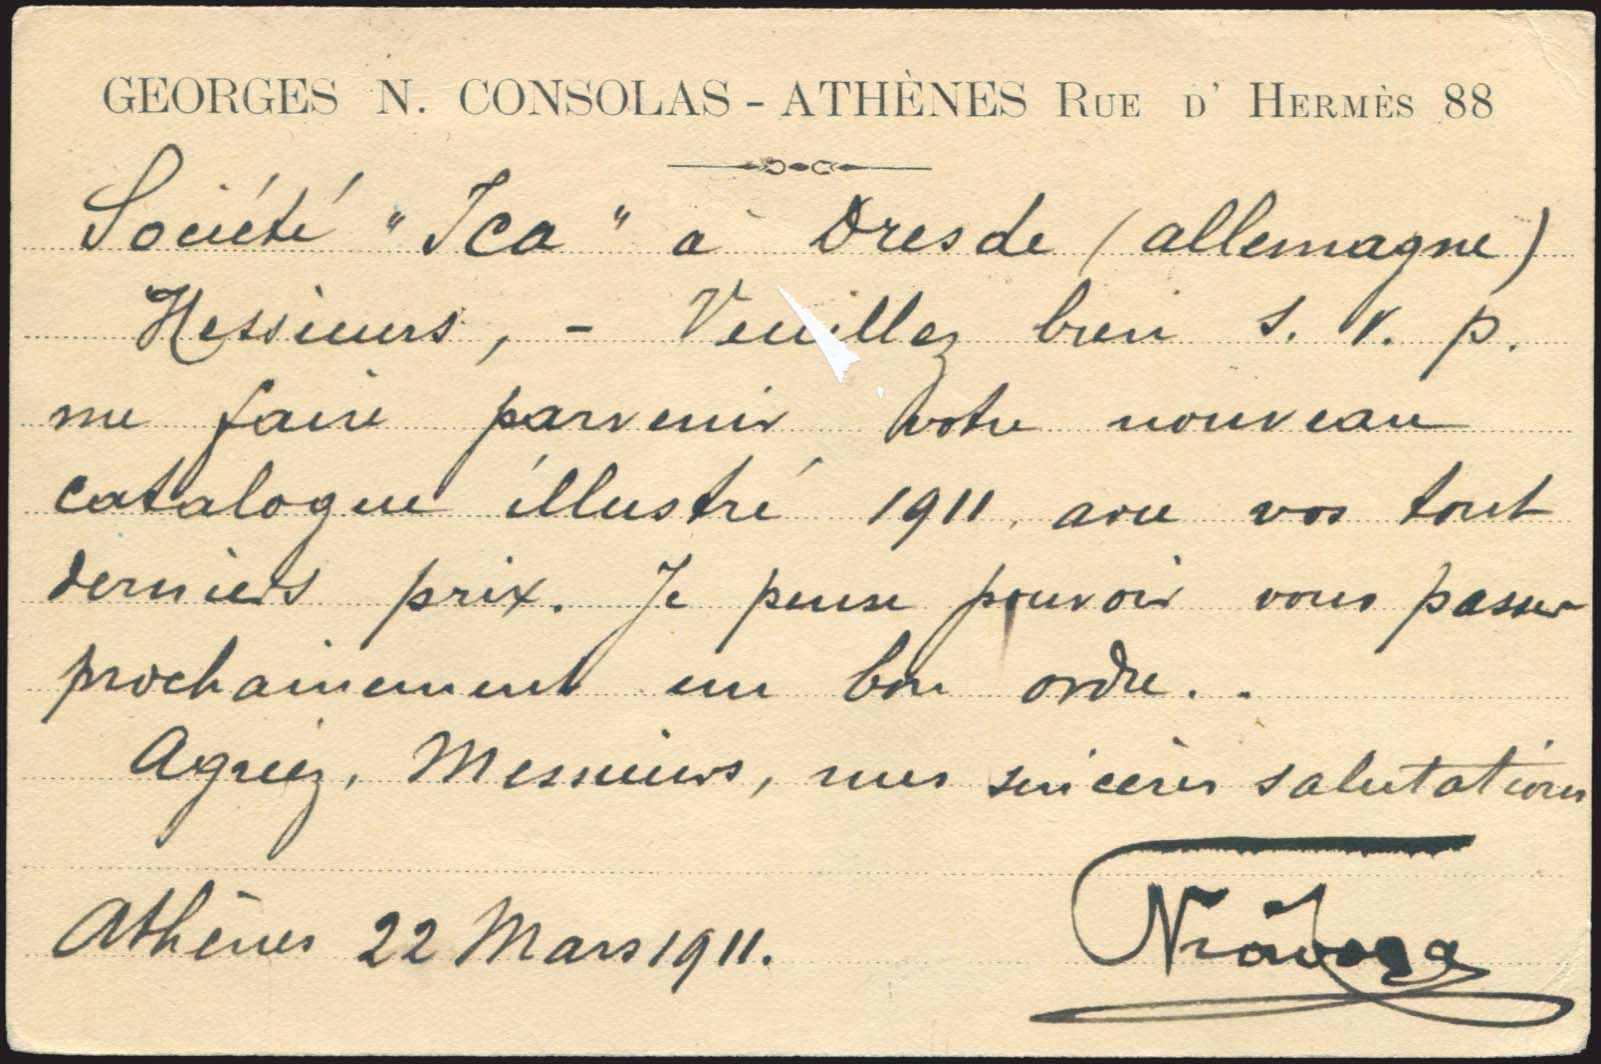 GEORGES N. CONSOLAS - ATHÈNES RUE D' HERMÈS 88
Société "Ica" à Dresde (allemagne)
Messieurs, - Veuillez bien s. v. p.
me faire parvenir votre nouveau
catalogue illustré 1911 avec vos tout
derniers prix. Je pense pouvoir vous passer
prochainement un bon ordre. .
Agréez, Messieurs, mes sincères salutations
Athènes 22 Mars 1911.